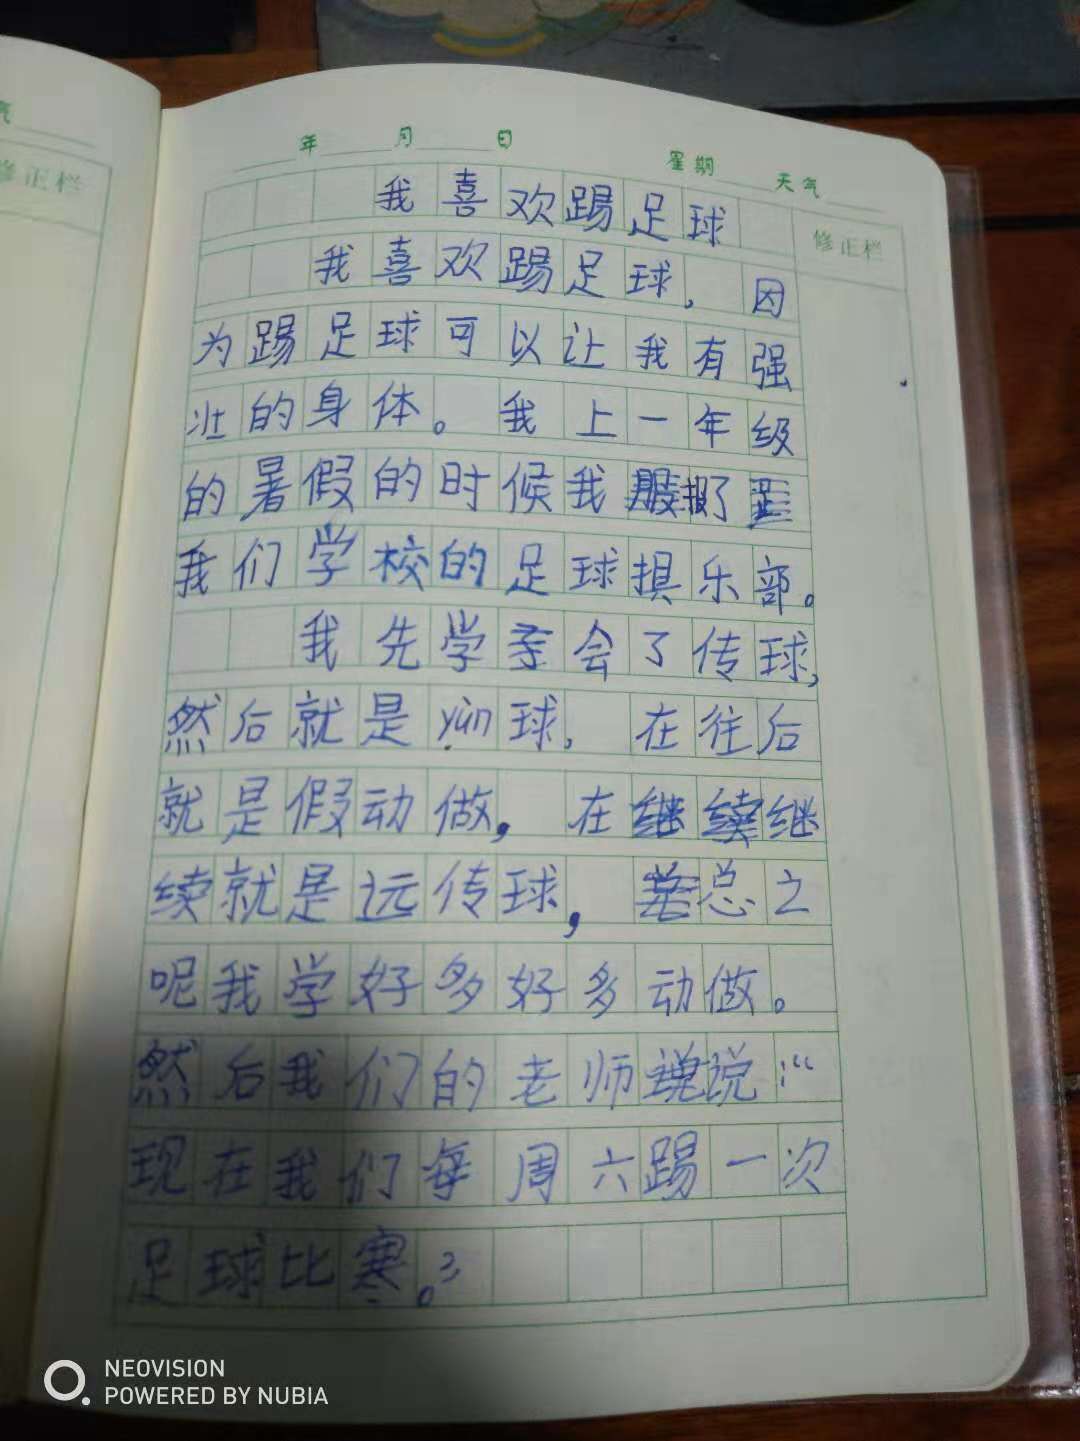 气
修正栏
年 月 日 星期 天气
修正栏
我喜欢踢足球
我喜欢踢足球，因
为踢足球可以让我有强
壮的身体。我上一年级
的暑假的时候我报了
我们学校的足球俱乐部。
我先学会了传球，
然后就是yùn球，在往后
就是假动做，在继续继
续就是远传球，总之
呢我学好多好多动做。
然后我们的老师说：“
现在我们每周六踢一次
足球比寒。”
NEOVISION
POWERED BY NUBIA